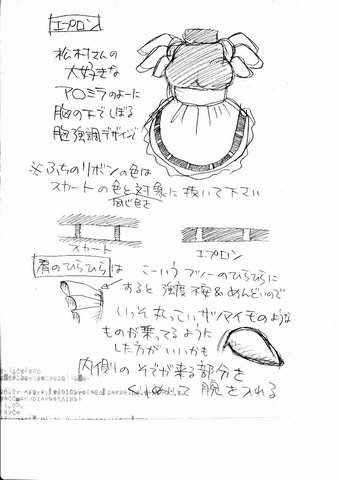 エプロン
松村さんの
大好きな
アロミラのように
胸の下でしぼる
胸強調デザインで
※ふちのリボンの色は
スカートの色と対象に抜いて下さい
同じ色を
スカート
エプロン
肩のひらひらは
こーいうフツーのひらひらに
すると強度不安&めんどいので
いっそ丸っこいサツマイモのような
ものが乗ってるように
した方がいいかも
内側のそでが来る部分を
って腕を入れる